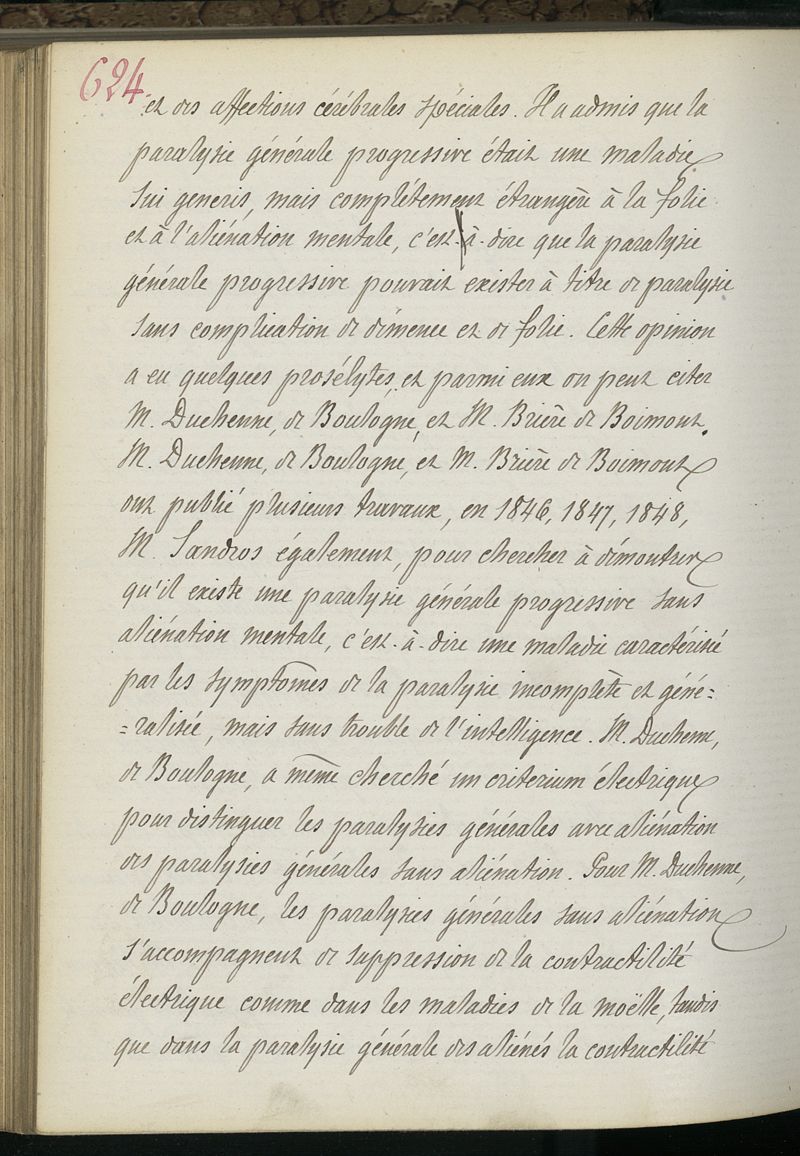 624
et des affections cérébrales spéciales. Il a admis que la
paralysie générale progressive était une maladie
sui generis, mais complétement étrangère à la folie
et à l'aliénation mentale, c'est-à-dire que la paralysie
générale progressive pouvait exister à titre de paralysie
sans complication de démence et de folie. Cette opinion
a eu quelques prosélytes, et parmi eux on peut citer
M. Duchenne, de Boulogne, et M. Brière de Boimont.
M. Duchenne, de Boulogne, et M. Brière de Boimont
ont publié plusieurs travaux, en 1846, 1847, 1848,
M. Sandros également, pour chercher à démontrer
qu'il existe une paralysie générale progressive sans
aliénation mentale, c'est-à-dire une maladie caractérisé
par les symptômes de la paralysie incomplète et géné=
=ralisée, mais sans trouble de l'intelligence. M. Duchenne,
de Boulogne, a même cherché un criterium électrique
pour distinguer les paralysies générales avec aliénation
des paralysies générales sans aliénation. Pour M. Duchenne,
de Boulogne, les paralysies générales sans aliénation
s'accompagnent de suppression de la contractilité
électrique comme dans les maladies de la moëlle, tandis
que dans la paralysie générale des aliénés la contractilité